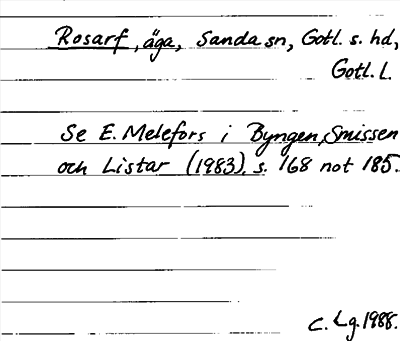 Rosarf, äga, Sanda sn, Gotl. s. hd,
Gotl. L.
Se E. Melefors i Byngen, Smissen
och Listar (1983). s. 168 not 185.
C. Lg. 1988.